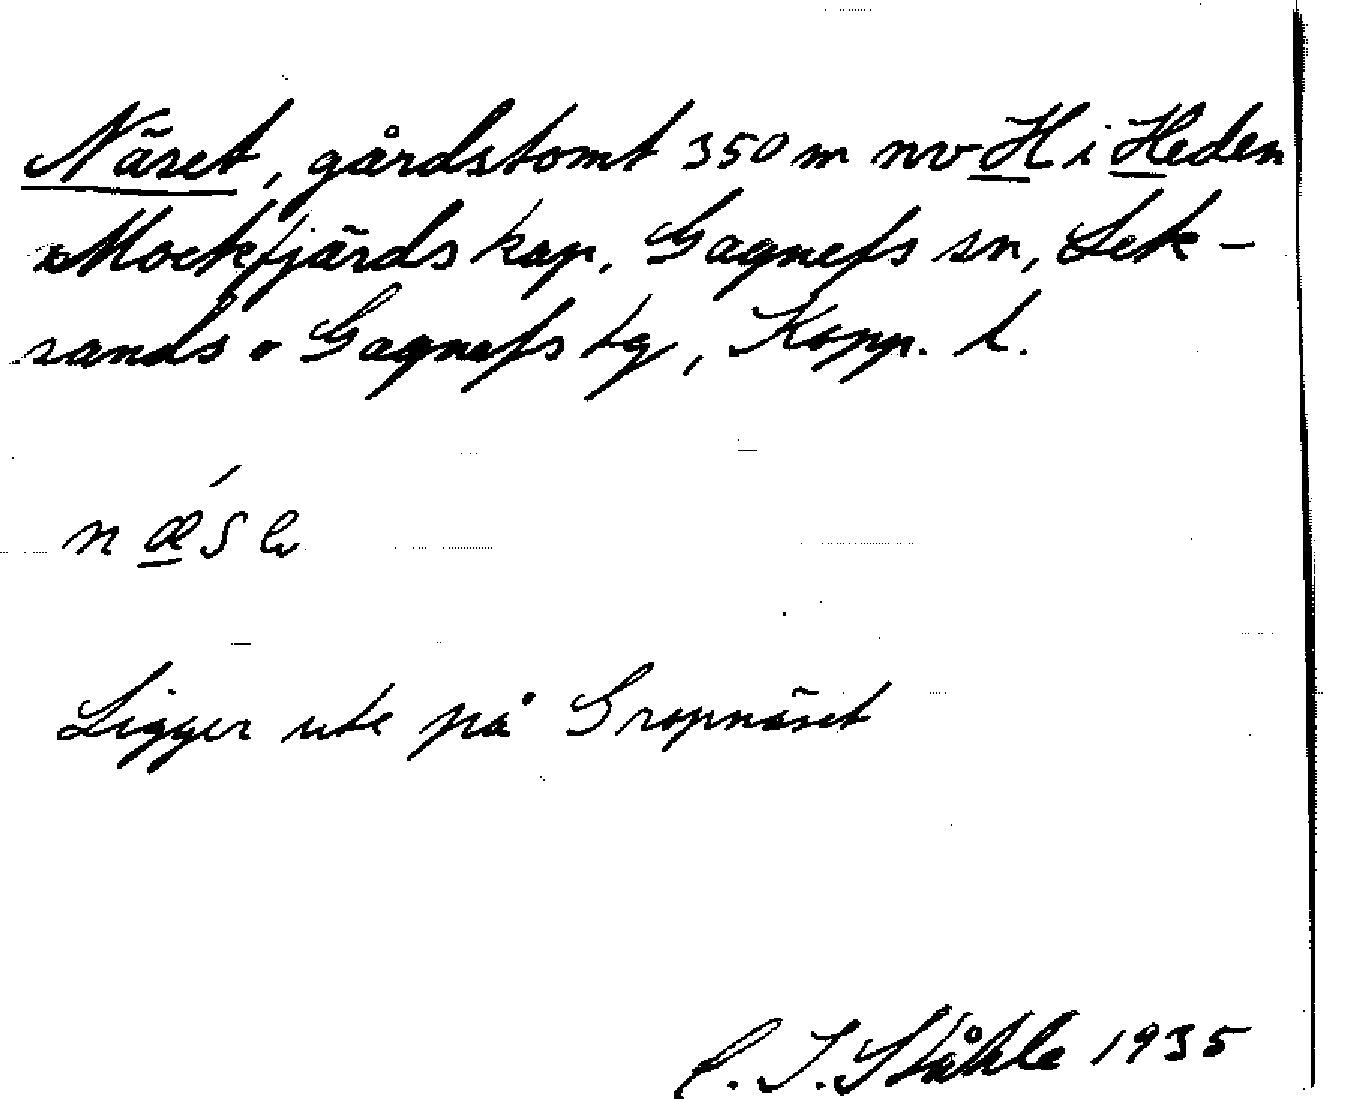 Näset, gårdstomt 350 m nv H i Heden
Mockfjärds kap. Gagnefs sn, Lek-
sands o Gagnefs tg, Kopp. l.
næ´se
Ligger ute på Gropnäset
C. I. Ståhle 1935